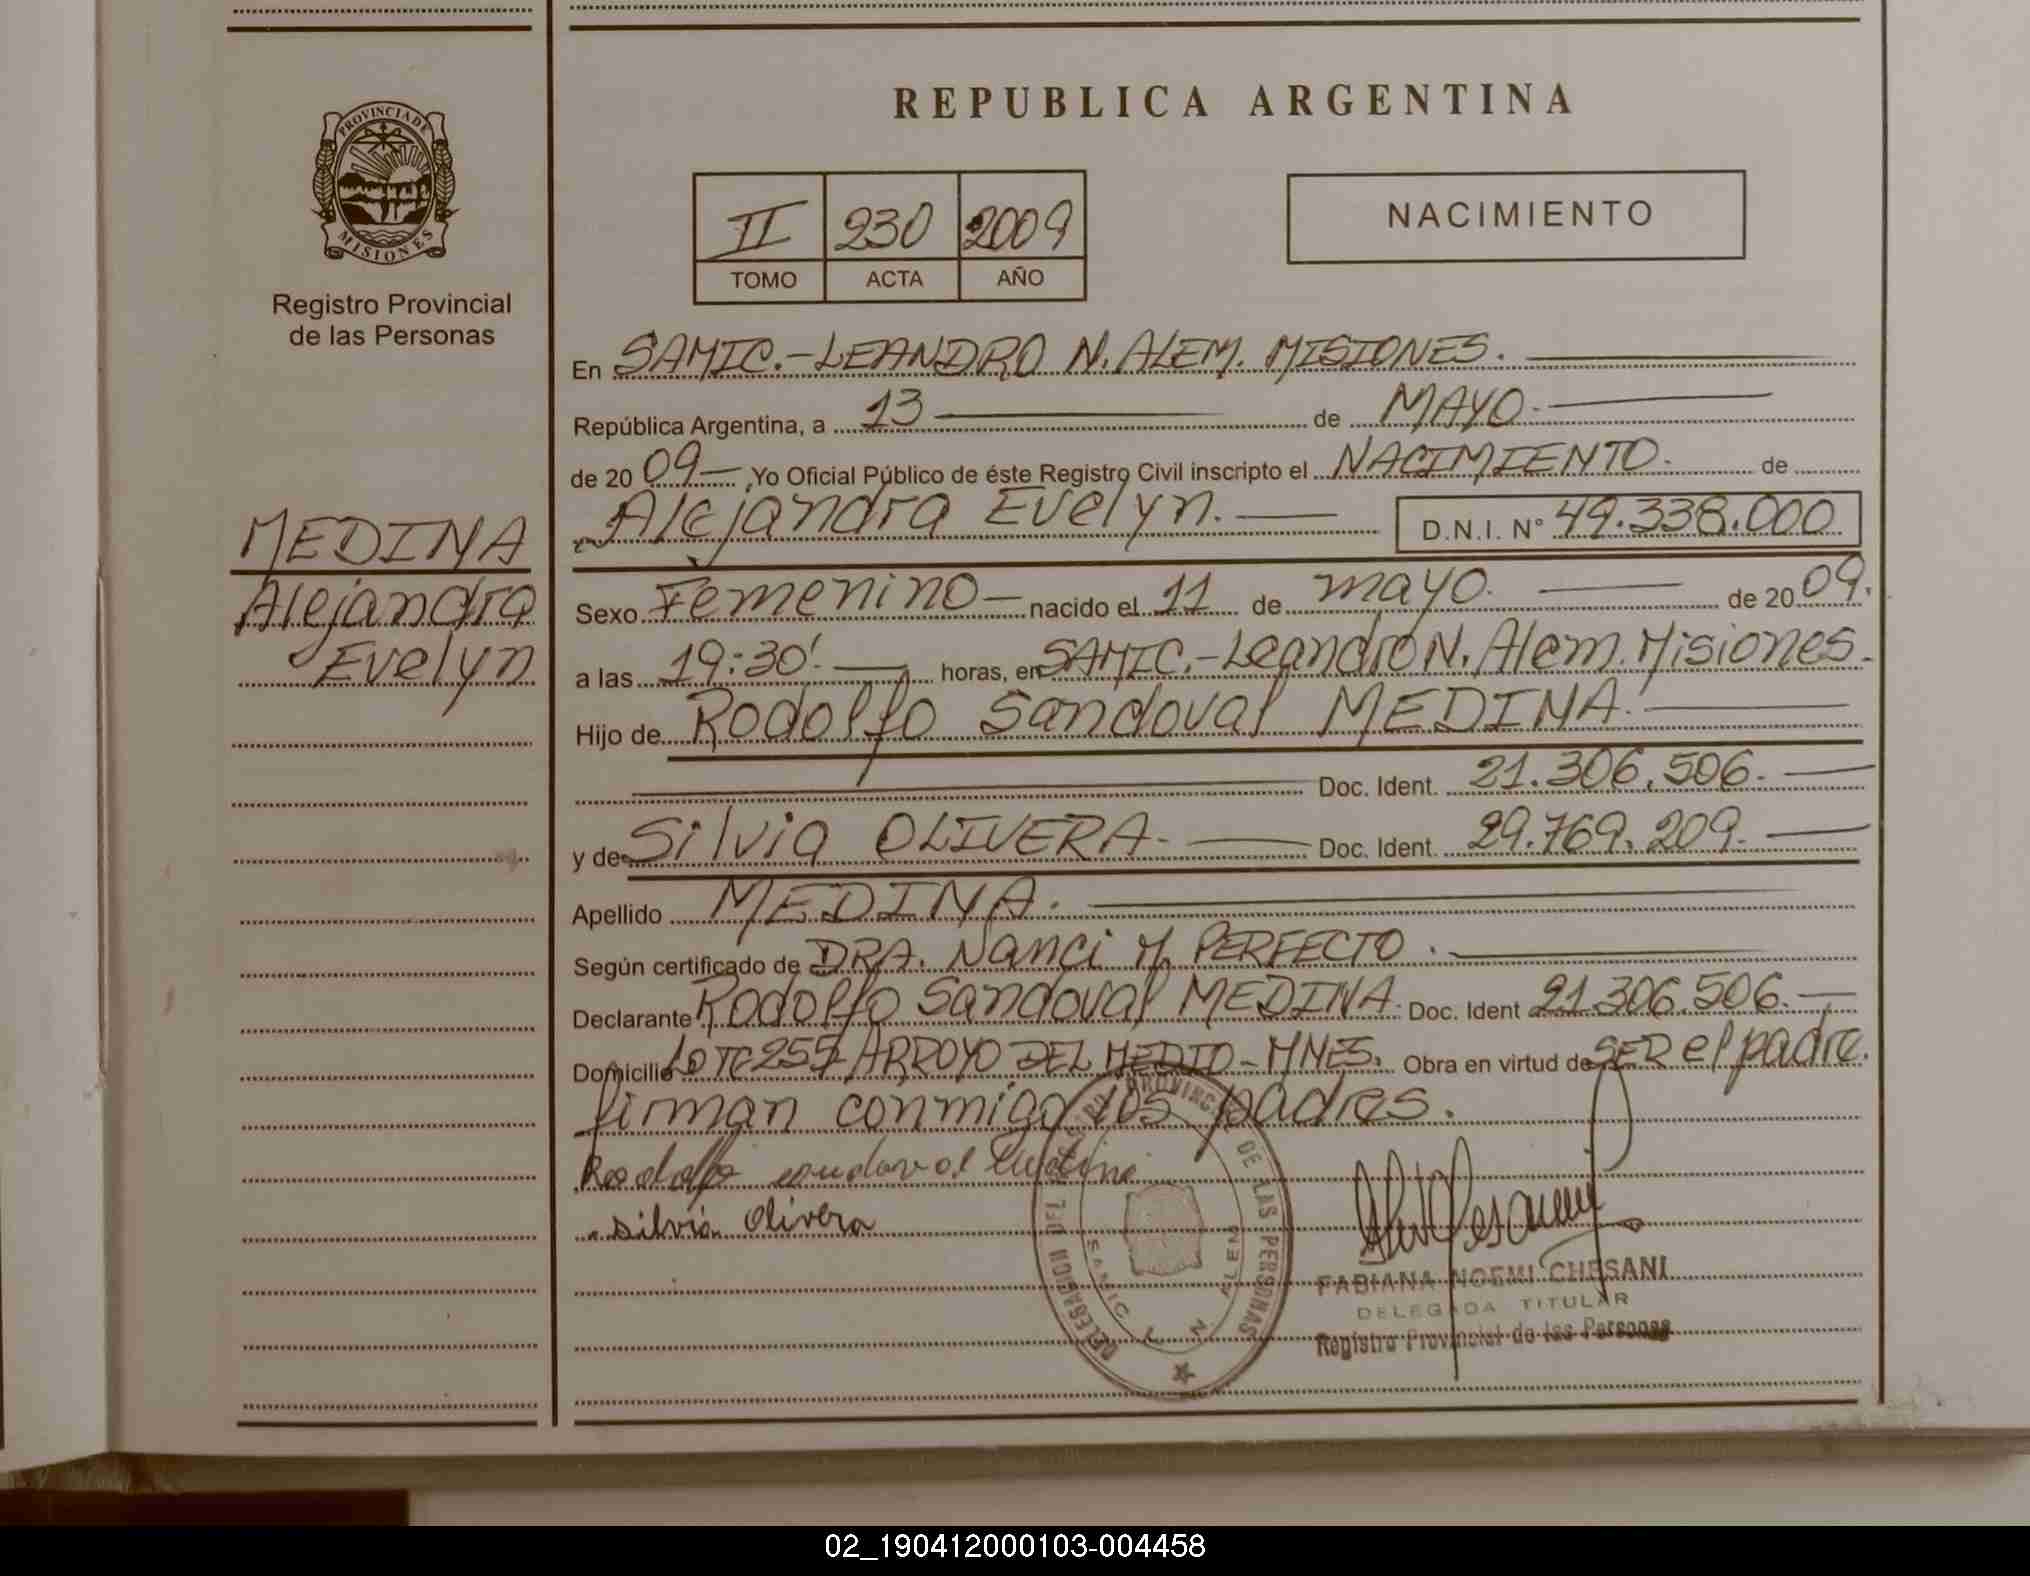 REPUBLICA ARGENTINA
PROVINCIA DE
MISIONES
Registro Provincial
de las Personas
II 230 2009
TOMO ACTA AÑO
NACIMIENTO
En SAMIC.-LEANDRO N. ALEM. MISIONES.
República Argentina, a 13 de MAYO.
de 20 09 ,Yo Oficial Público de éste Registro Civil inscripto el NACIMIENTO. de
Alejandra Evelyn. D.N.I. N° 49.338.000
MEDINA
Alejandra
Evelyn
Sexo Femenino nacido el 11 de mayo. de 20 09.
a las 19:30'. horas, en SAMIC.-Leandro N. Alem. Misiones.
Hijo de Rodolfo Sandoval MEDINA.
Doc. Ident. 21.306.506.
y de Silvia OLIVERA. Doc. Ident. 29.769.209.
Apellido MEDINA.
Según certificado de DRA. Nanci M. PERFECTO.
Declarante Rodolfo Sandoval MEDINA. Doc. Ident 21.306.506.
Domicilio LOTE 257 ARROYO DEL MEDIO-MNES. Obra en virtud de SER el padre.
firman conmigo los padres.
Rodolfo sandoval Medina
silvia olivera
DELEGACION DEL REGISTRO PROVINCIAL DE LAS PERSONAS
SAMIC L N ALEM
FABIANA NOEMI CHESANI
DELEGADA TITULAR
Registro Provincial de las Personas
02_190412000103-004458